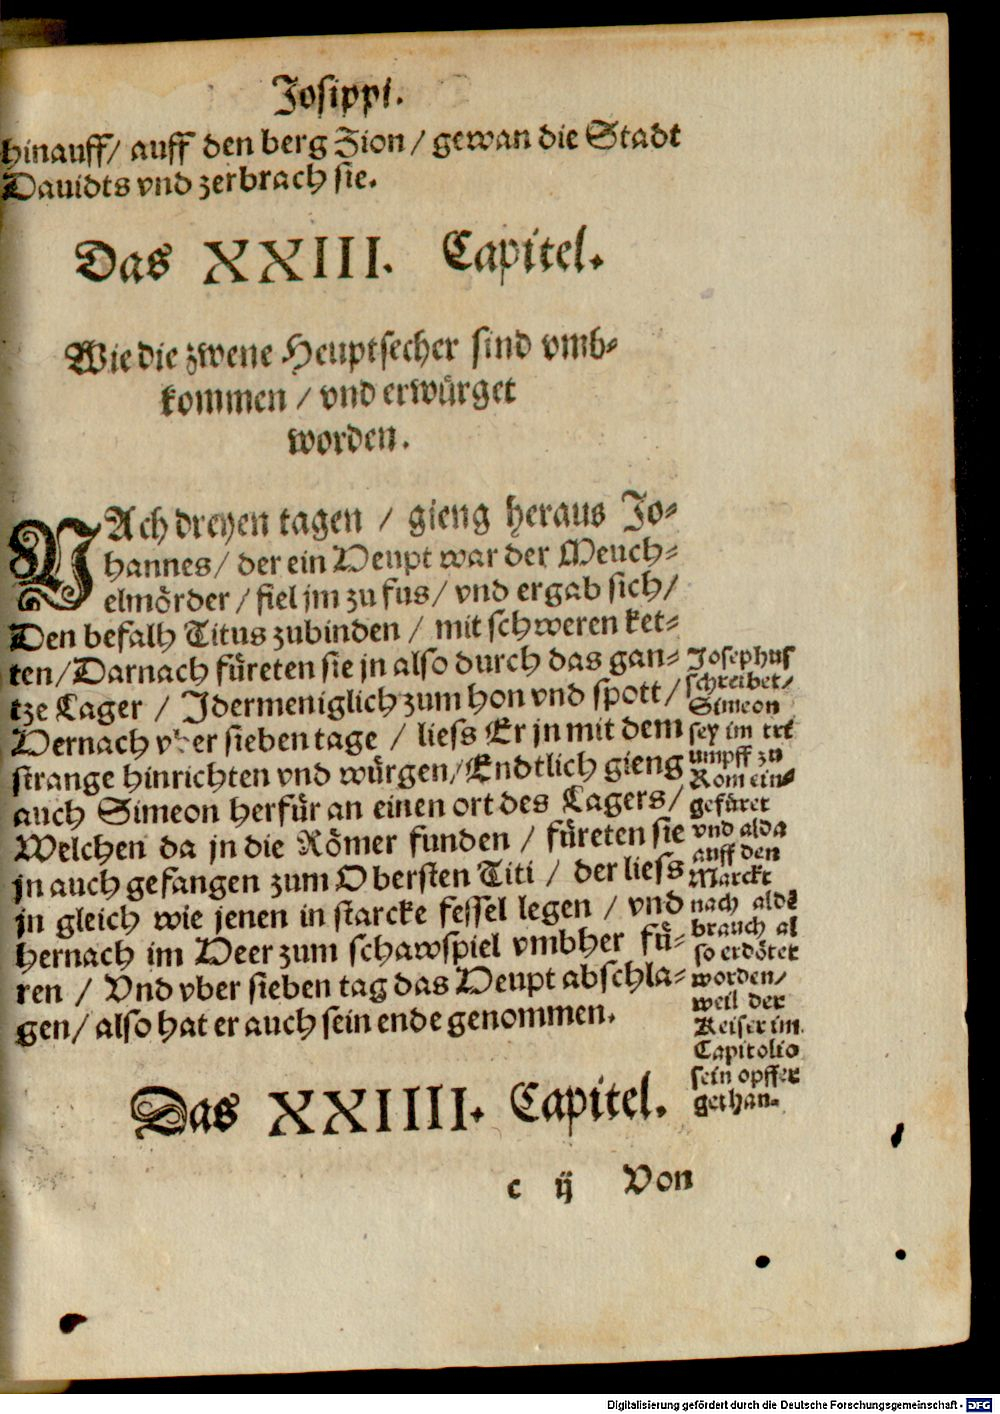 Josippi.
hinauff/ auff den berg Zion / gewan die Stadt
Dauidts vnd zerbrach sie.
Das XXIII. Capitel.
Wie die zwene Heuptsecher sind vmb-
kommen / vnd erwürget
worden.
NAch dreyen tagen / gieng heraus Jo-
hannes/ der ein Heupt war der Meuch-
elmörder / fiel jm zu fus/ vnd ergab sich/
Den befalh Titus zubinden / mit schweren ket-
ten/ Darnach füreten sie jn also durch das gan-
tze Lager / Jdermeniglich zum hon vnd spott/
Hernach vber sieben tage / liess Er jn mit dem
strange hinrichten vnd würgen/ Endtlich gieng
auch Simeon herfür an einen ort des Lagers/
Welchen da jn die Römer funden / füreten sie
jn auch gefangen zum Obersten Titi / der liess
jn gleich wie jenen in starcke fessel legen / vnd
hernach im Heer zum schawspiel vmbher fü-
ren / Vnd vber sieben tag das Heupt abschla-
gen/ also hat er auch sein ende genommen.
Josephus
schreibet/
Simeon
sey im tri
umpff zu
Rom ein-
gefüret
vnd alda
auff den
Marckt
nach aldē
brauch al
so erdötet
worden/
weil der
Keiser im
Capitolio
sein opffer
gethan.
Das XXIIII. Capitel.
c ij Von
Digitalisierung gefördert durch die Deutsche Forschungsgemeinschaft - DFG